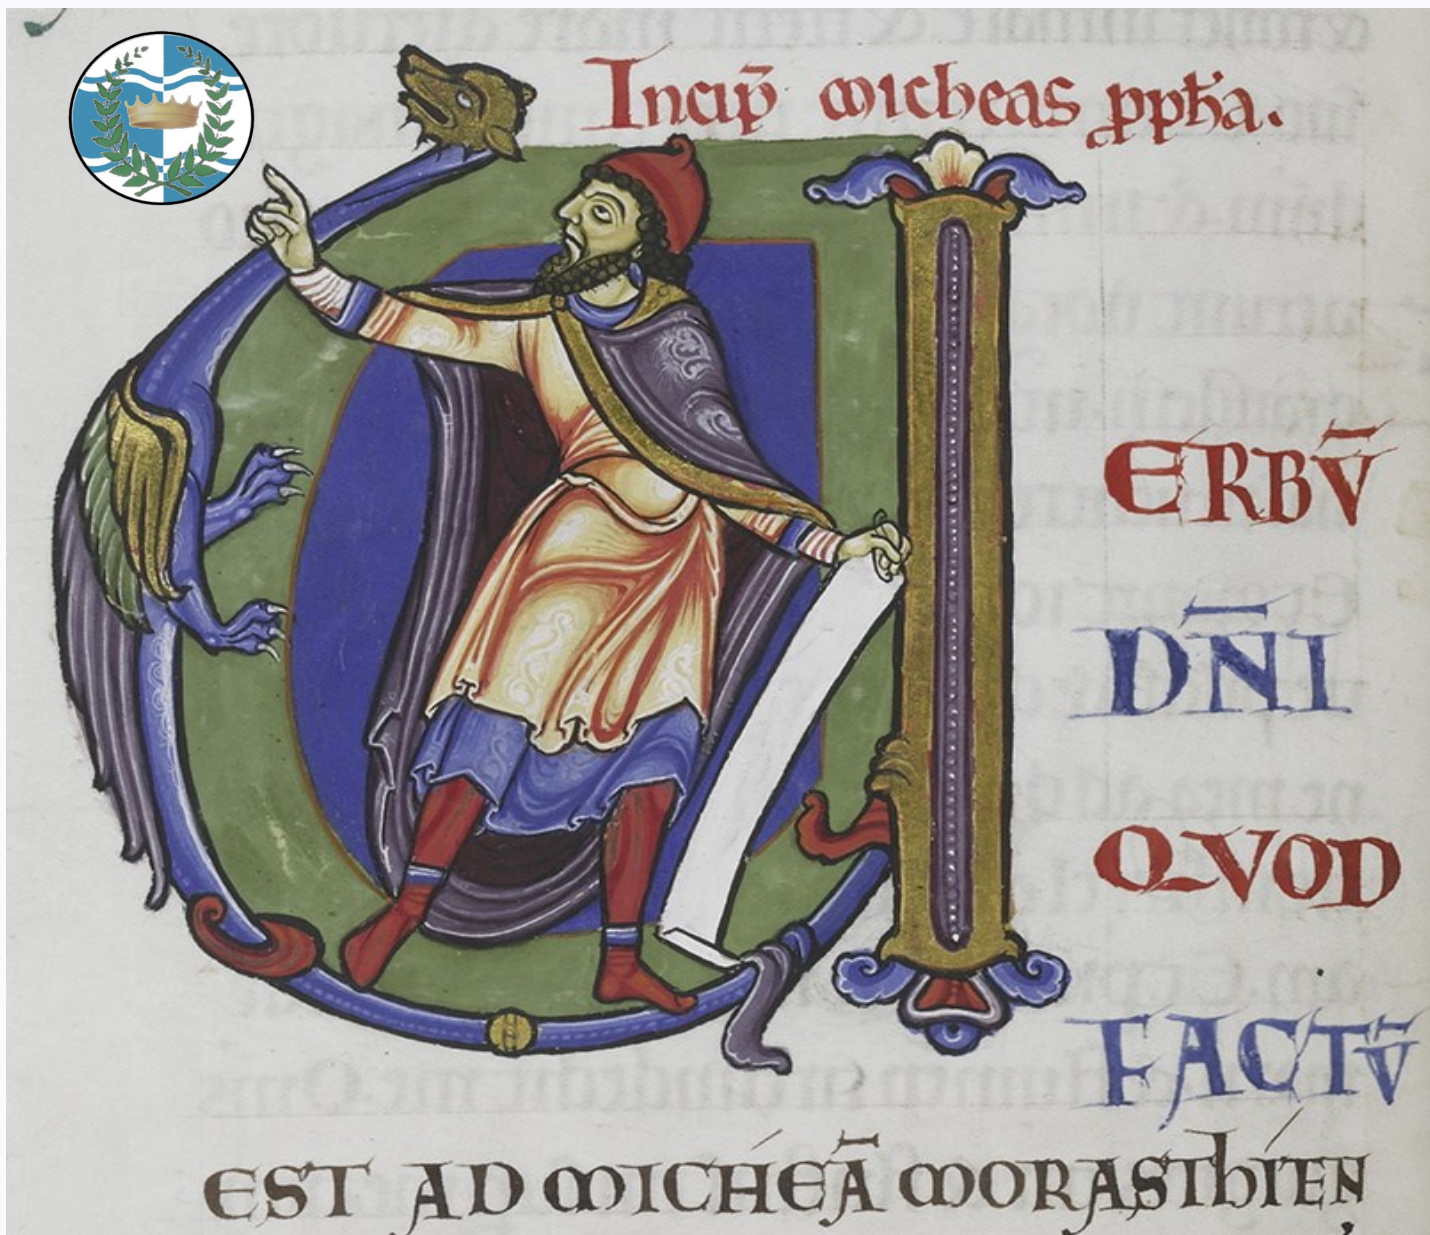 Incip̄ micheas ꝓph̄a.
ERBV̄
DN̄I
QVOD
FACTV̄
EST AD MICHÉĀ MORASThÍEN